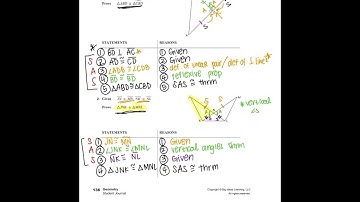 Prove △ABD ≅ △CBD
STATEMENTS REASONS
① BD ⊥ AC ① Given
② AD ≅ CD ② Given
③ ∠ADB ≅ ∠CDB ③ def of linear pair/def of ⊥ lines
④ BD ≅ BD ④ reflexive prop
⑤ △ABD ≅ △CBD ⑤ SAS ≅ thrm
2. Given
Prove △JNK ≅ △MNL
* vertical
∠s
STATEMENTS REASONS
S ① JN ≅ MN ① Given
A ② ∠JNK ≅ ∠MNL ② vertical angles thrm
S ③ NK ≅ NL ③ Given
④ △JNK ≅ △MNL ④ SAS ≅ thrm
Geometry
Student Journal
Copyright © Big Ideas Learning, LLC